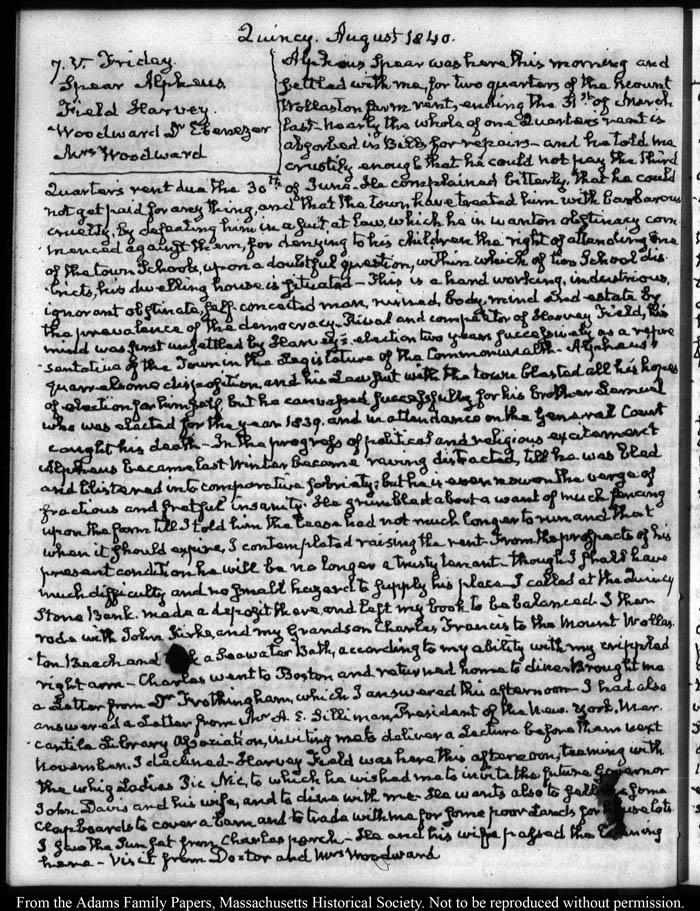 Quincy. August 1840.
7. V. Friday.
Spear Alpheus
Field Harvey.
Woodward Dr Ebenezer
Mrs Woodward
Alpheus Spear was here this morning and
settled with me, for two quarters of the Mount
Wollaston farm rent, ending the 31st of March
last— nearly the whole of one Quarters rent is
absorbed in Bills for repairs— and he told me
crustily enough that he could not pay the third
Quarters rent due the 30th of June. He complained bitterly, that he could
not get paid for any thing, and that the town have treated him with barbarous
cruelty, by defeating him in a suit at Law, which he in wanton obstinacy com-
-menced against them, for denying to his children the right of attending one
of the town Schools, upon a doubtful question, within which of two School dis-
tricts, his dwelling house is situated— This is a hard working, industrious,
ignorant obstinate, self-conceited man, ruined, body, mind and estate by
the prevalence of the democracy. Rival and competitor of Harvey Field, his
mind was first unsettled by Harvey's election two years successively as a repre-
sentative of the Town in the Legislature of the Commonwealth. Alpheus's
quarrelsome disposition, and his Lawsuit with the town blasted all his hopes
of election for himself, but he canvassed successfully for his brother Lemuel
who was elected for the year 1839. and in attendance on the General Court
caught his death— In the progress of political and religious excitement
Alpheus became last Winter became raving distracted, till he was bled
and blistered into comparative sobriety; but he is even now on the verge of
fractious and fretful insanity. He grumbled about a want of much fencing
upon the farm till I told him the Lease had not much longer to run and that
when it should expire, I contemplated raising the rent. From the prospects of his
present condition he will be no longer a trusty tenant— though I shall have
much difficulty and no small hazard to supply his place. I called at the Quincy
Stone Bank. made a deposit there, and left my book to be balanced. I then
rode with John Kirke, and my Grandson Charles Francis to the Mount Wollas-
ton Beach and a Seawater Bath, according to my ability with my crippled
right arm— Charles went to Boston and returned home to dine. Brought me
a Letter from Dr Frothingham, which I answered this afternoon— I had also
answered a Letter from Mr A. E. Silliman, President of the New-York, Mer-
-cantile Library Association, inviting me to deliver a Lecture before them next
November. I declined— Harvey Field was here this afternoon, teeming with
the whig Ladies Pic Nic, to which he wished me to invite the future Governor
John Davis and his wife, and to dine with me— He wants also to some
clapboards to cover a barn and to trade with me for some poor Lands for house lots.
I saw the Sun set from Charles's porch— He and his wife passed the Evening
here— Visit from Doctor and Mrs Woodward
From the Adams Family Papers, Massachusetts Historical Society. Not to be reproduced without permission.